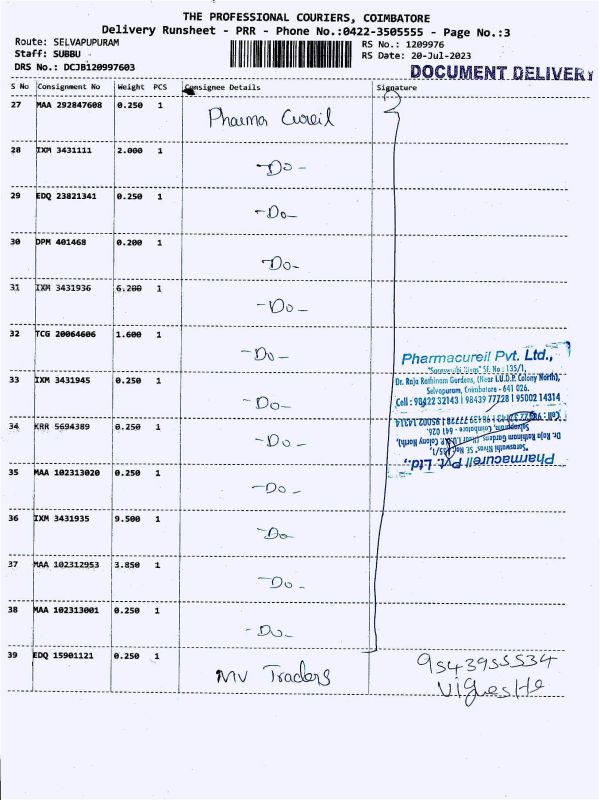 THE PROFESSIONAL COURIERS, COIMBATORE
Delivery Runsheet - PRR - Phone No.:0422-3505555 - Page No.:3
Route: SELVAPUPURAM
Staff: SUBBU
DRS No.: DCJB120997603
RS No.: 1209976
RS Date: 20-Jul-2023
DOCUMENT DELIVERY
S No Consignment No Weight PCS Consignee Details Signature
27 MAA 292847608 0.250 1 Pharma Cureil
28 IXM 3431111 2.000 1 -Do-
29 EDQ 23821341 0.250 1 -Do-
30 DPM 401468 0.200 1 -Do-
31 IXM 3431936 6.200 1 -Do-
32 TCG 20064606 1.600 1 -Do-
33 IXM 3431945 0.250 1 -Do-
34 KRR 5694389 0.250 1 -Do-
35 MAA 102313020 0.250 1 -Do-
36 IXM 3431935 9.500 1 -Do-
37 MAA 102312953 3.850 1 -Do-
38 MAA 102313001 0.250 1 -Do-
39 EDQ 15901121 0.250 1 MV Traders
Pharmacureil Pvt. Ltd.,
"Saraswathi Nivas" SF. No : 135/1,
Dr. Raja Rathinam Gardens, (Near I.U.D.P. Colony North),
Selvapuram, Coimbatore - 641 026.
Cell : 98422 32143 | 98439 77728 | 95002 14314
Pharmacureil Pvt. Ltd.,
"Saraswathi Nivas" SF. No : 135/1,
Dr. Raja Rathinam Gardens, (Near I.U.D.P. Colony North),
Selvapuram, Coimbatore - 641 026.
Cell : 98422 32143 | 98439 77728 | 95002 14314
9543955534